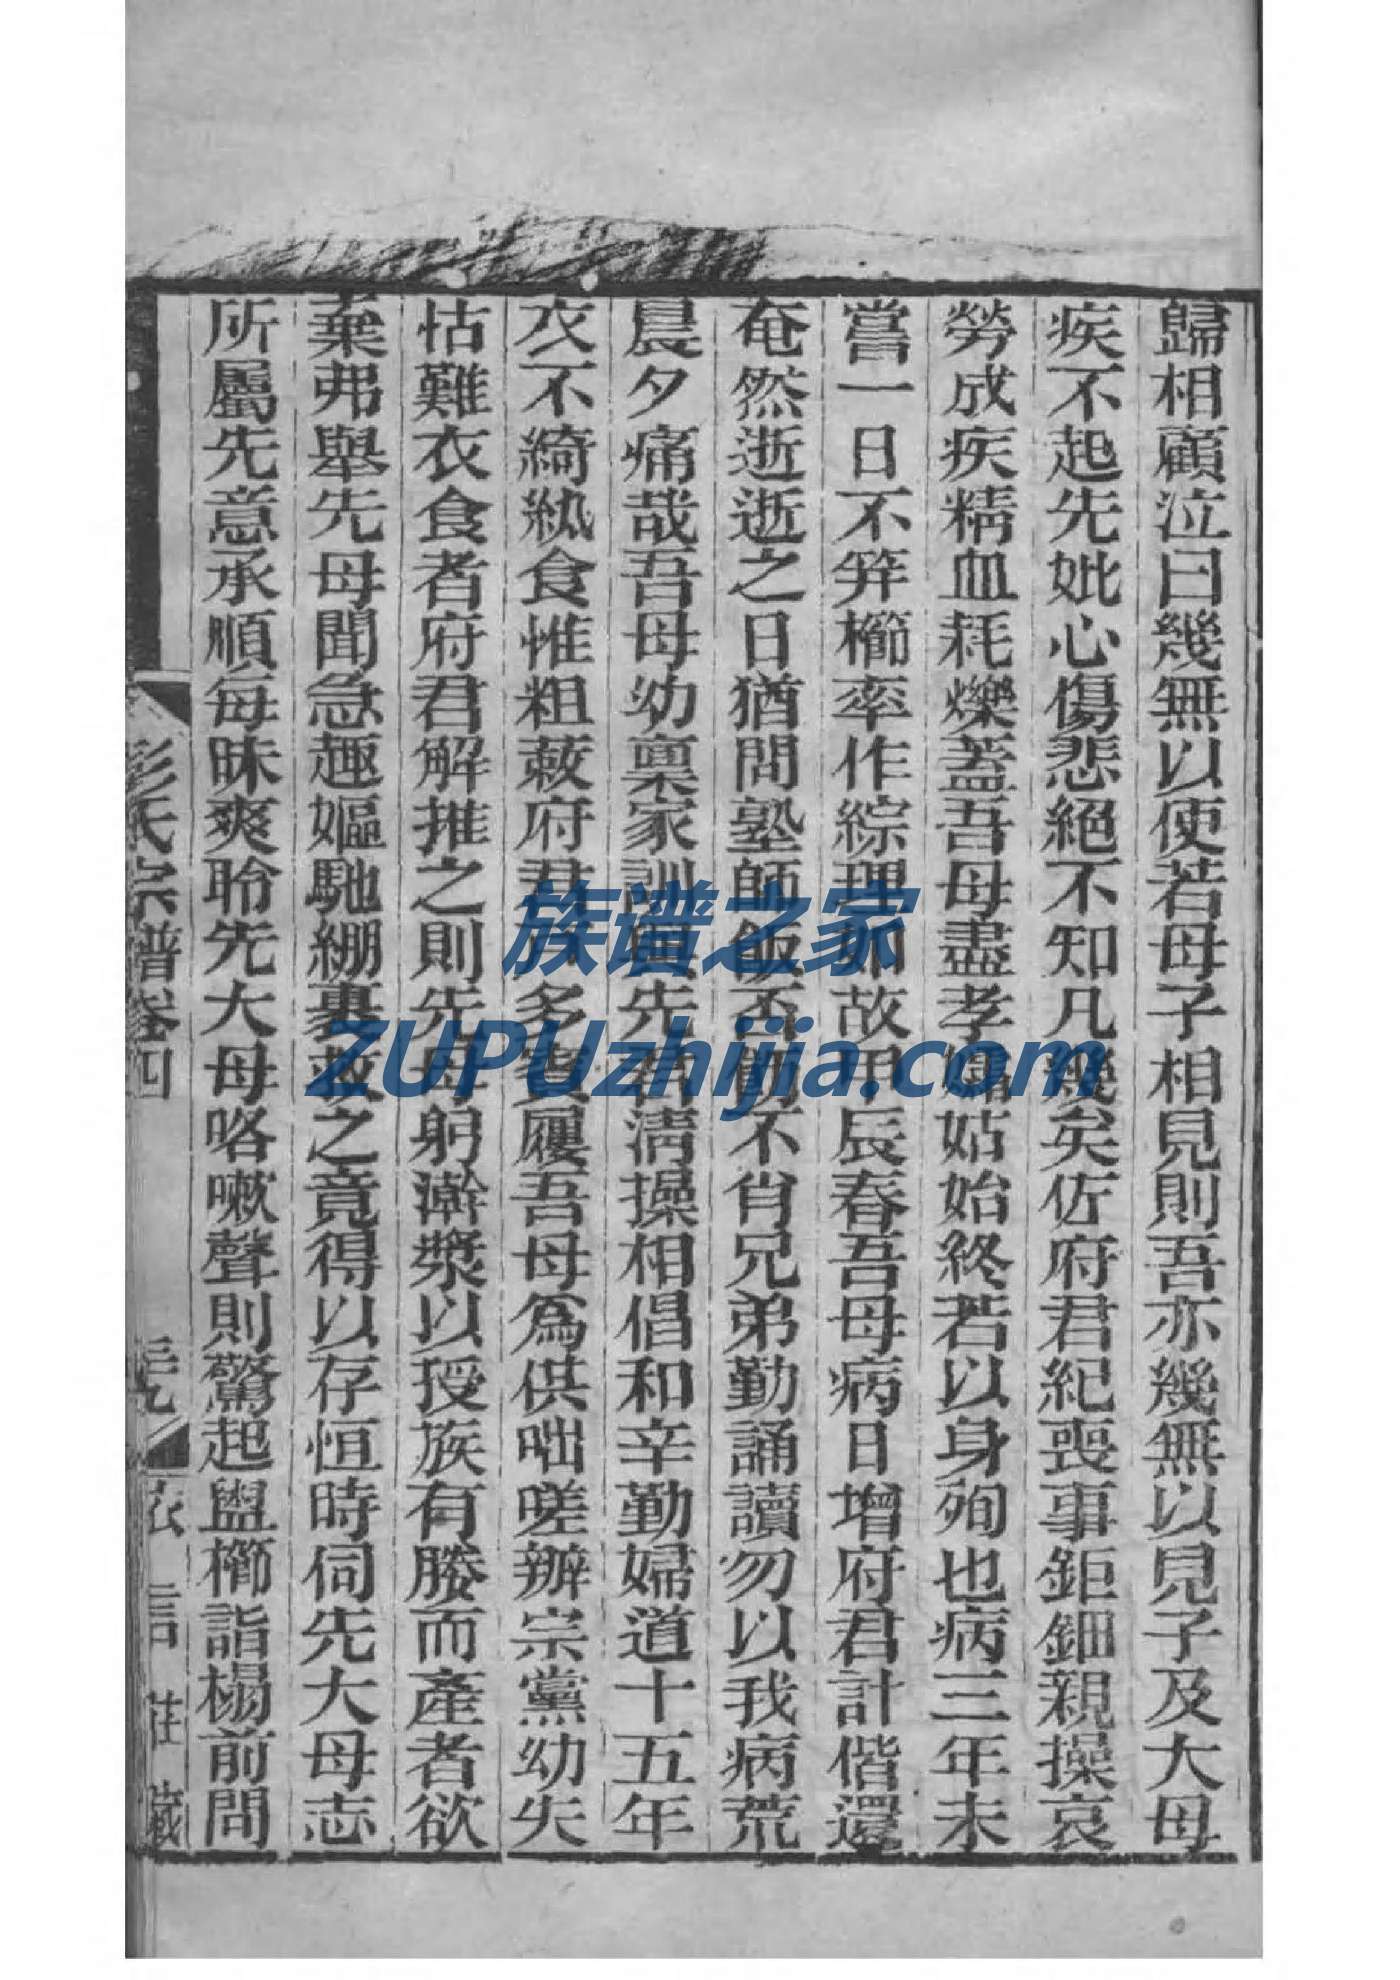 歸相顧泣曰幾無以使若母子相見則吾亦幾無以見子及大母
疾不起先妣心傷悲絕不知凡幾矣佐府君紀喪事鉅鈿親操哀
勞成疾精血耗爍蓋吾母盡孝孀姑始終若以身殉也病三年未
嘗一日不笄櫛率作綜理如故甲辰春吾母病日增府君計偕還
奄然逝逝之日猶問塾師飯否勸不肖兄弟勤誦讀勿以我病荒
晨夕痛哉吾母幼稟家訓與先君清操相倡和辛勤婦道十五年
衣不綺紈食惟粗蔌府君客多賓履吾母為供咄嗟辦宗黨幼失
怙難衣食者府君解推之則先母躬澣漿以授族有媵而產者欲
棄弗舉先母聞急趣嫗馳繃裹救之竟得以存恒時伺先大母志
所屬先意承順每昧爽聆先大母咯嗽聲則驚起盥櫛詣榻前問
彭氏宗譜卷四
族谱之家
ZUPUzhijia.com